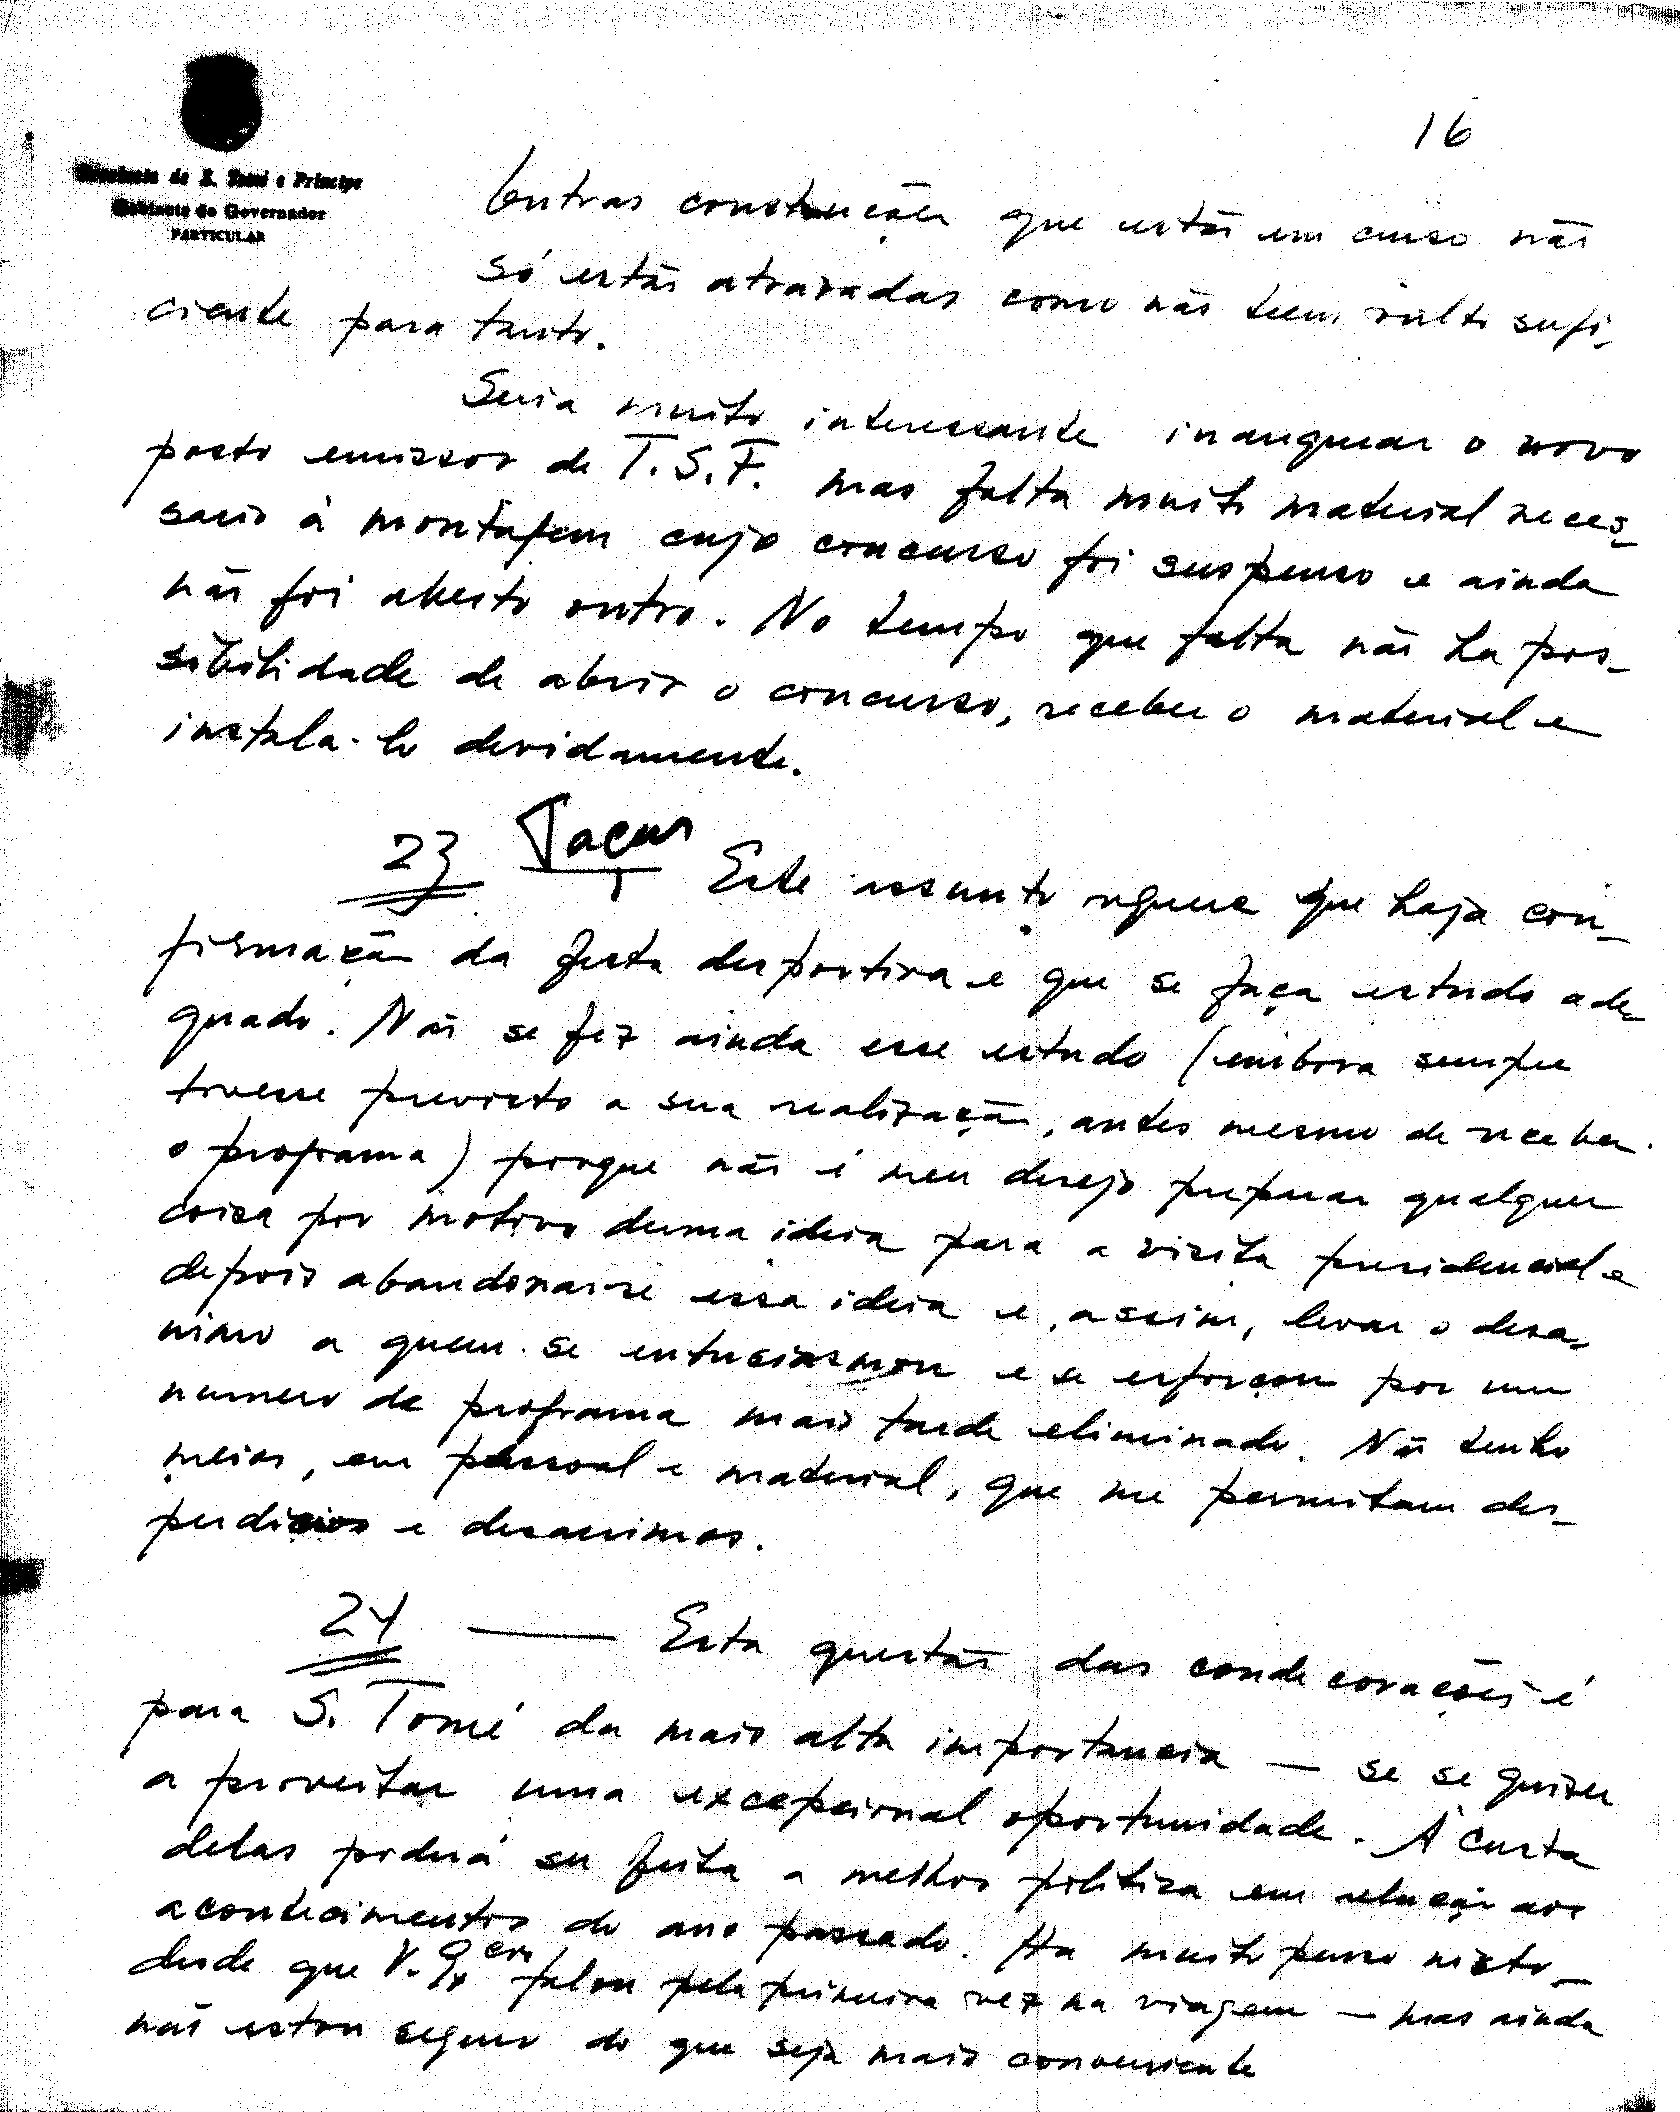 16
Governo de S. Tomé e Príncipe
Gabinete do Governador
PARTICULAR
Outras construções que estão em curso não
só estão atrazadas como não teem vulto sufi-
ciente para tanto.
Seria muito interessante inaugurar o novo
posto emissor de T.S.F. mas falta muito material neces-
sario á montagem cujo concurso foi suspenso e ainda
não foi aberto outro. No tempo que falta não ha pos-
sibilidade de abrir o concurso, receber o material e
instala-lo devidamente.
23 Taças
Este assunto requere que haja con-
firmação da festa desportiva e que se faça estudo ade-
quado. Não se fez ainda esse estudo (embora sempre
tivesse previsto a sua realização, antes mesmo de receber
o programa) porque não é meu desejo preparar qualquer
coisa por motivo duma ideia para a visita presidencial e
depois abandonar-se essa ideia e, assim, levar o desa-
nimo a quem se entusiasmou e se esforçou por um
numero de programa mais tarde eliminado. Não tenho
meios, em pessoal e material, que me permitam des-
perdicios e desanimos.
24 — Esta questão das condecorações é
para S. Tomé da mais alta importancia — se se quizer
aproveitar uma excepcional oportunidade. Á custa
delas poderá ser feita a melhor politica em relação aos
acontecimentos do ano passado. Ha muito penso nisto —
desde que V. Exᶜⁱᵃ falou pela primeira vez na viagem — mas ainda
não estou seguro do que seja mais conveniente